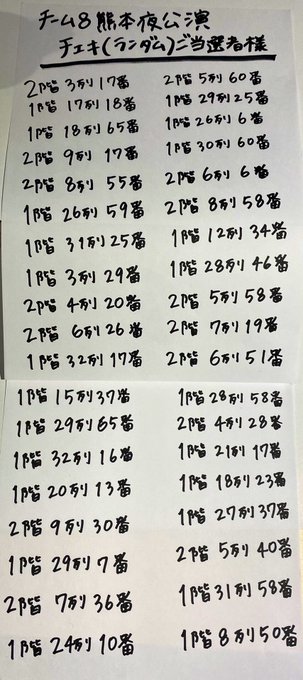 チーム8熊本夜公演
チェキ(ランダム)ご当選者様
2階 3列 17番
1階 17列 18番
1階 18列 65番
2階 9列 17番
2階 8列 55番
1階 26列 59番
1階 31列 25番
1階 3列 29番
2階 4列 20番
2階 6列 26番
1階 32列 17番
2階 5列 60番
1階 29列 25番
1階 26列 6番
1階 30列 60番
2階 6列 6番
2階 8列 58番
1階 12列 34番
1階 28列 46番
2階 5列 58番
2階 7列 19番
2階 6列 51番
1階 15列 37番
1階 29列 65番
1階 32列 16番
1階 20列 13番
2階 9列 30番
1階 29列 7番
2階 7列 36番
1階 24列 10番
1階 28列 58番
2階 4列 28番
1階 21列 17番
1階 18列 23番
1階 27列 37番
2階 5列 40番
1階 31列 58番
1階 8列 50番